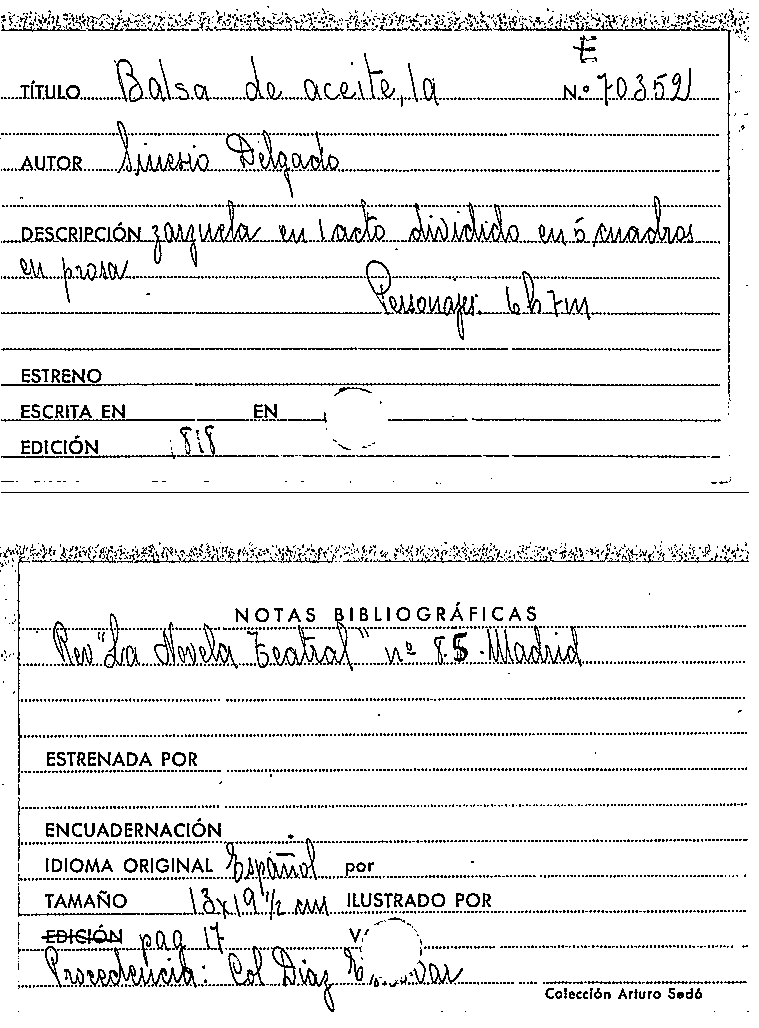 E
TÍTULO Balsa de aceite, la N.º 70352
AUTOR Sinesio Delgado
DESCRIPCIÓN zarzuela en 1 acto dividido en 5 cuadros
en prosa
Personajes: 6h 7m
ESTRENO
ESCRITA EN EN
EDICIÓN 1818
NOTAS BIBLIOGRÁFICAS
Rev "La Novela Teatral" nº 85 - Madrid
ESTRENADA POR
ENCUADERNACIÓN
IDIOMA ORIGINAL Español por
TAMAÑO 13x19 1/2 cm ILUSTRADO POR
EDICIÓN pag 17
Procedencia: Col Diaz
Colección Arturo Sedó